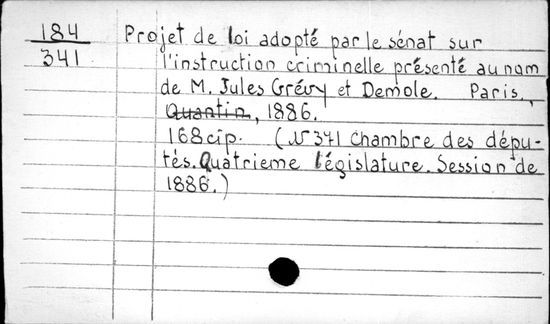 184 Projet de loi adopté par le sénat sur
341 l'instruction criminelle présenté au nom
de M. Jules Grévy et Demole. Paris,
Quantin, 1886.
168 cip. (N 341 Chambre des dépu-
tés. Quatrieme législature. Session de
1886.)